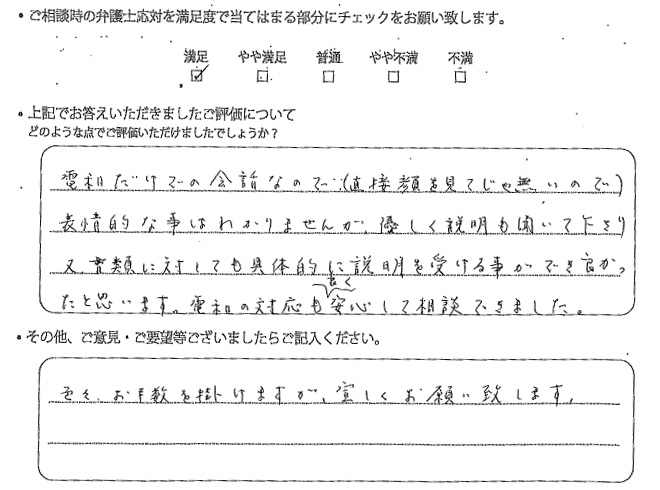 ・ご相談時の弁護士応対を満足度で当てはまる部分にチェックをお願い致します。
満足 やや満足 普通 やや不満 不満
・上記でお答えいただきましたご評価について
どのような点でご評価いただけましたでしょうか？
電和だけでの会話なので、(直接顔を見てじゃ無いので)
表情的な事はわかりませんが、優しく説明も聞いて下さり
又、書類に対しても具体的に説明を受ける事ができ良かっ
たと思います。電和の対応も良く安心して相談できました。
・その他、ご意見・ご要望等ございましたらご記入ください。
お手数を掛けますが、宜しくお願い致します。